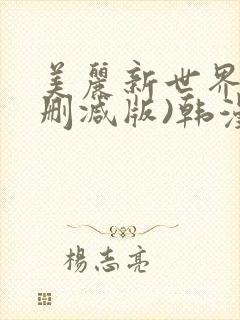 美麗新世界
刪減版)韩漫
楊志亮